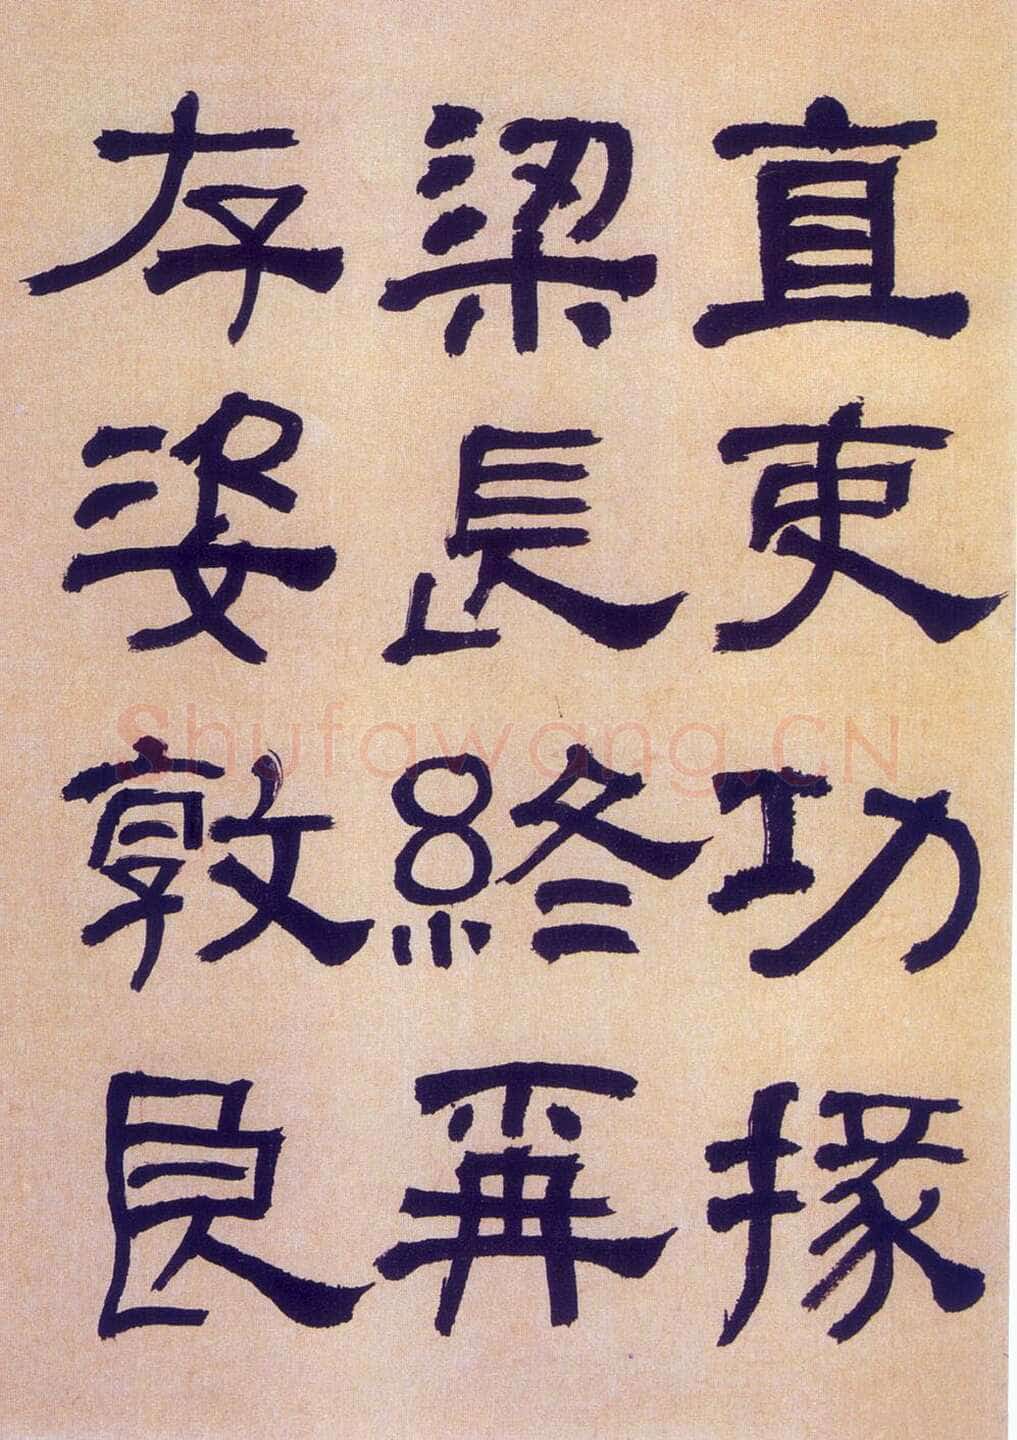 直吏功掾
梁長終再
存姿敦良
Shufawang.CN